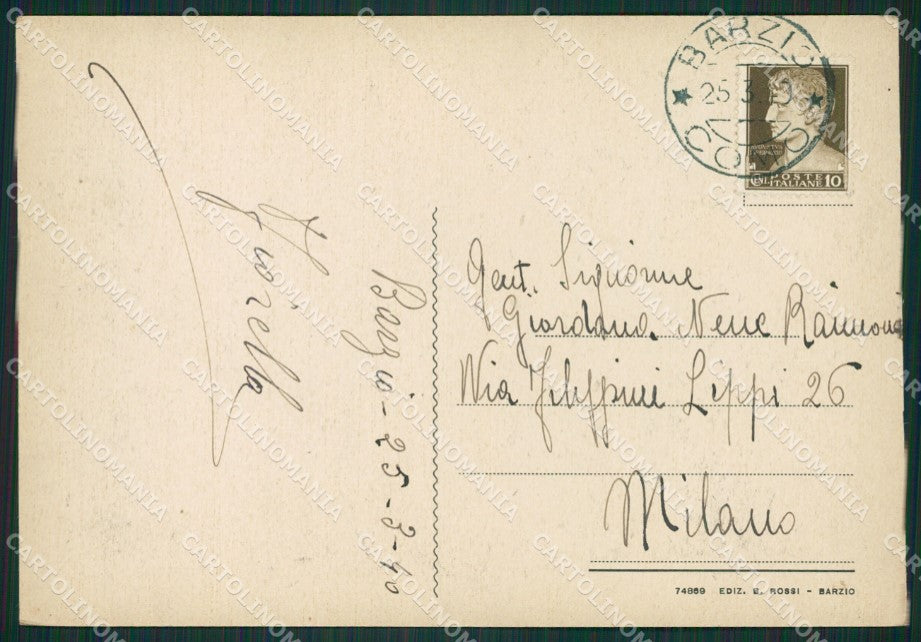 Fiorella
Barzio - 25-3-40
BARZIO
25.3.
COMO
POSTE
ITALIANE 10
Gent. Signorine
Giordana. Nene
Via Filippini Lippi 26
Milano
74869 EDIZ. E. ROSSI - BARZIO
CARTOLINOMANIA